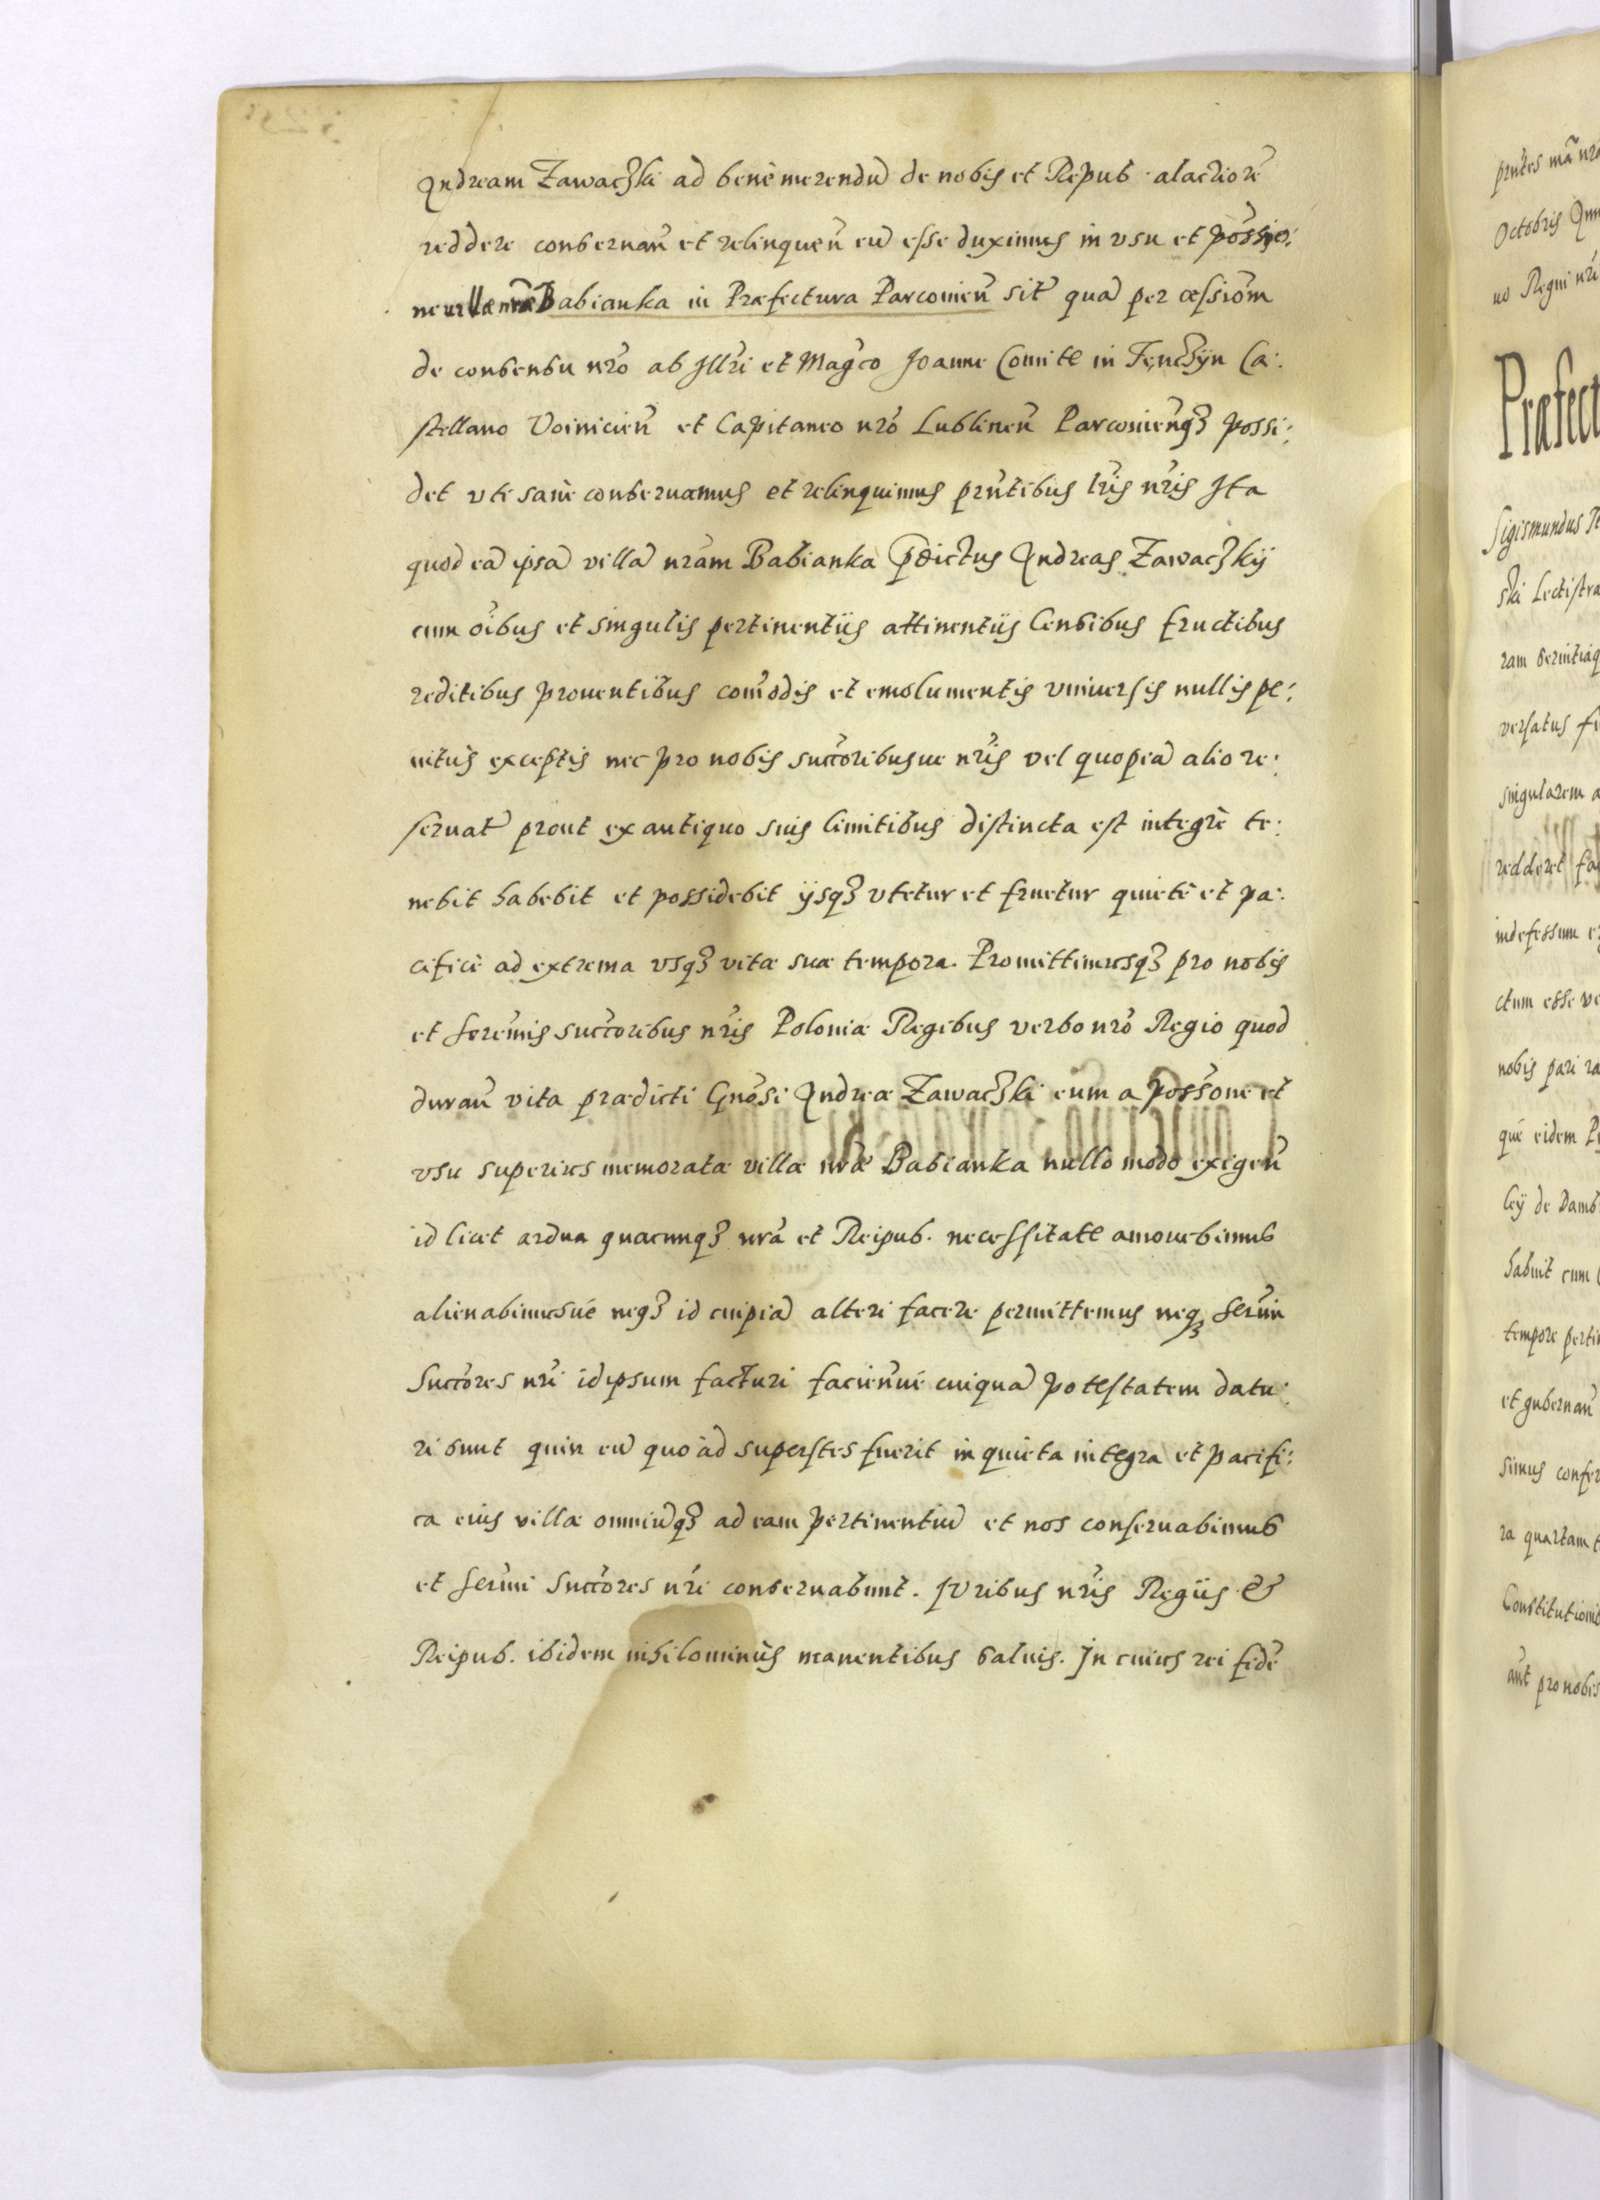 Andream Zawaczki ad benè merendū de nobis et Repub. alacriorē
reddere conseruan̄ et relinquen̄ eū esse duximus in vsu et possio:
ne villæ nr̄æ Babianka in Præfectura Parcouien̄ sit̄ quā per cessiōm
de consensu nr̄o ab Illr̄i et Mag͂co Joanne Comite in Tenczÿn Ca:
stellano Voinicien̄ et Capitaneo nr̄o Lublinen̄ Parcouien̄qꝫ possi:
det vti sanè conseruamus et relinquimus prn̄tibus lr̄is nr̄is Ita
quod eā ipsā villā nr̄am Babianka p̄dictus Andreas Zawaczkÿ
cum oībus et singulis pertinentijs attinentijs Censibus fructibus
reditibus prouentibus com̄odis et emolumentis vniuersis nullis pe:
nitùs exceptis nec pro nobis succ̄oribusue nr̄is vel quopiā alio re:
seruat̄ prout ex antiquo suis limitibus distincta est integrè te:
nebit habebit et possidebit ijsqꝫ vtetur et fruetur quietè et pa:
cificè ad extrema vsqꝫ vitæ suæ tempora. Promittimusqꝫ pro nobis
et Serēmis succ̄oribus nr̄is Poloniæ Regibus verbo nr̄o Regio quod
duran̄ vita prædicti Gn̄osi Andreæ Zawaczki eum a poss̄one et
vsu superius memoratæ villæ nr̄æ Babianka nullo modo exigen̄
id licet ardua quacunqꝫ nr̄a et Reipub. necessitate amouebimus
alienabimusué neqꝫ id cuipiā alteri facere permittemus neqꝫ Serm̄i
Succ̄ores nr̄i idipsum facturi facien̄ué cuiquā potestatem datu:
ri sunt quin eū quoàd superstes fuerit in quieta integra et pacifi:
ca eius villæ omniūqꝫ ad eam pertinentiū et nos conseruabimus
et Serm̄i Succ̄ores nr̄i conseruabunt. Iuribus nr̄is Regijs &
Reipub. ibidem nihilominùs manentibus saluis. In cuius rei fidē
prn̄tes
Octobris
Regni nr̄i
Præfect
Sigismundus
ski
versatus
singularem
redderet
indefessum
ctum esse
nobis pari
què eidem
habuit cum
tempore
et gubernan̄
simus
ra quartam
Constitutioni
pro nobis